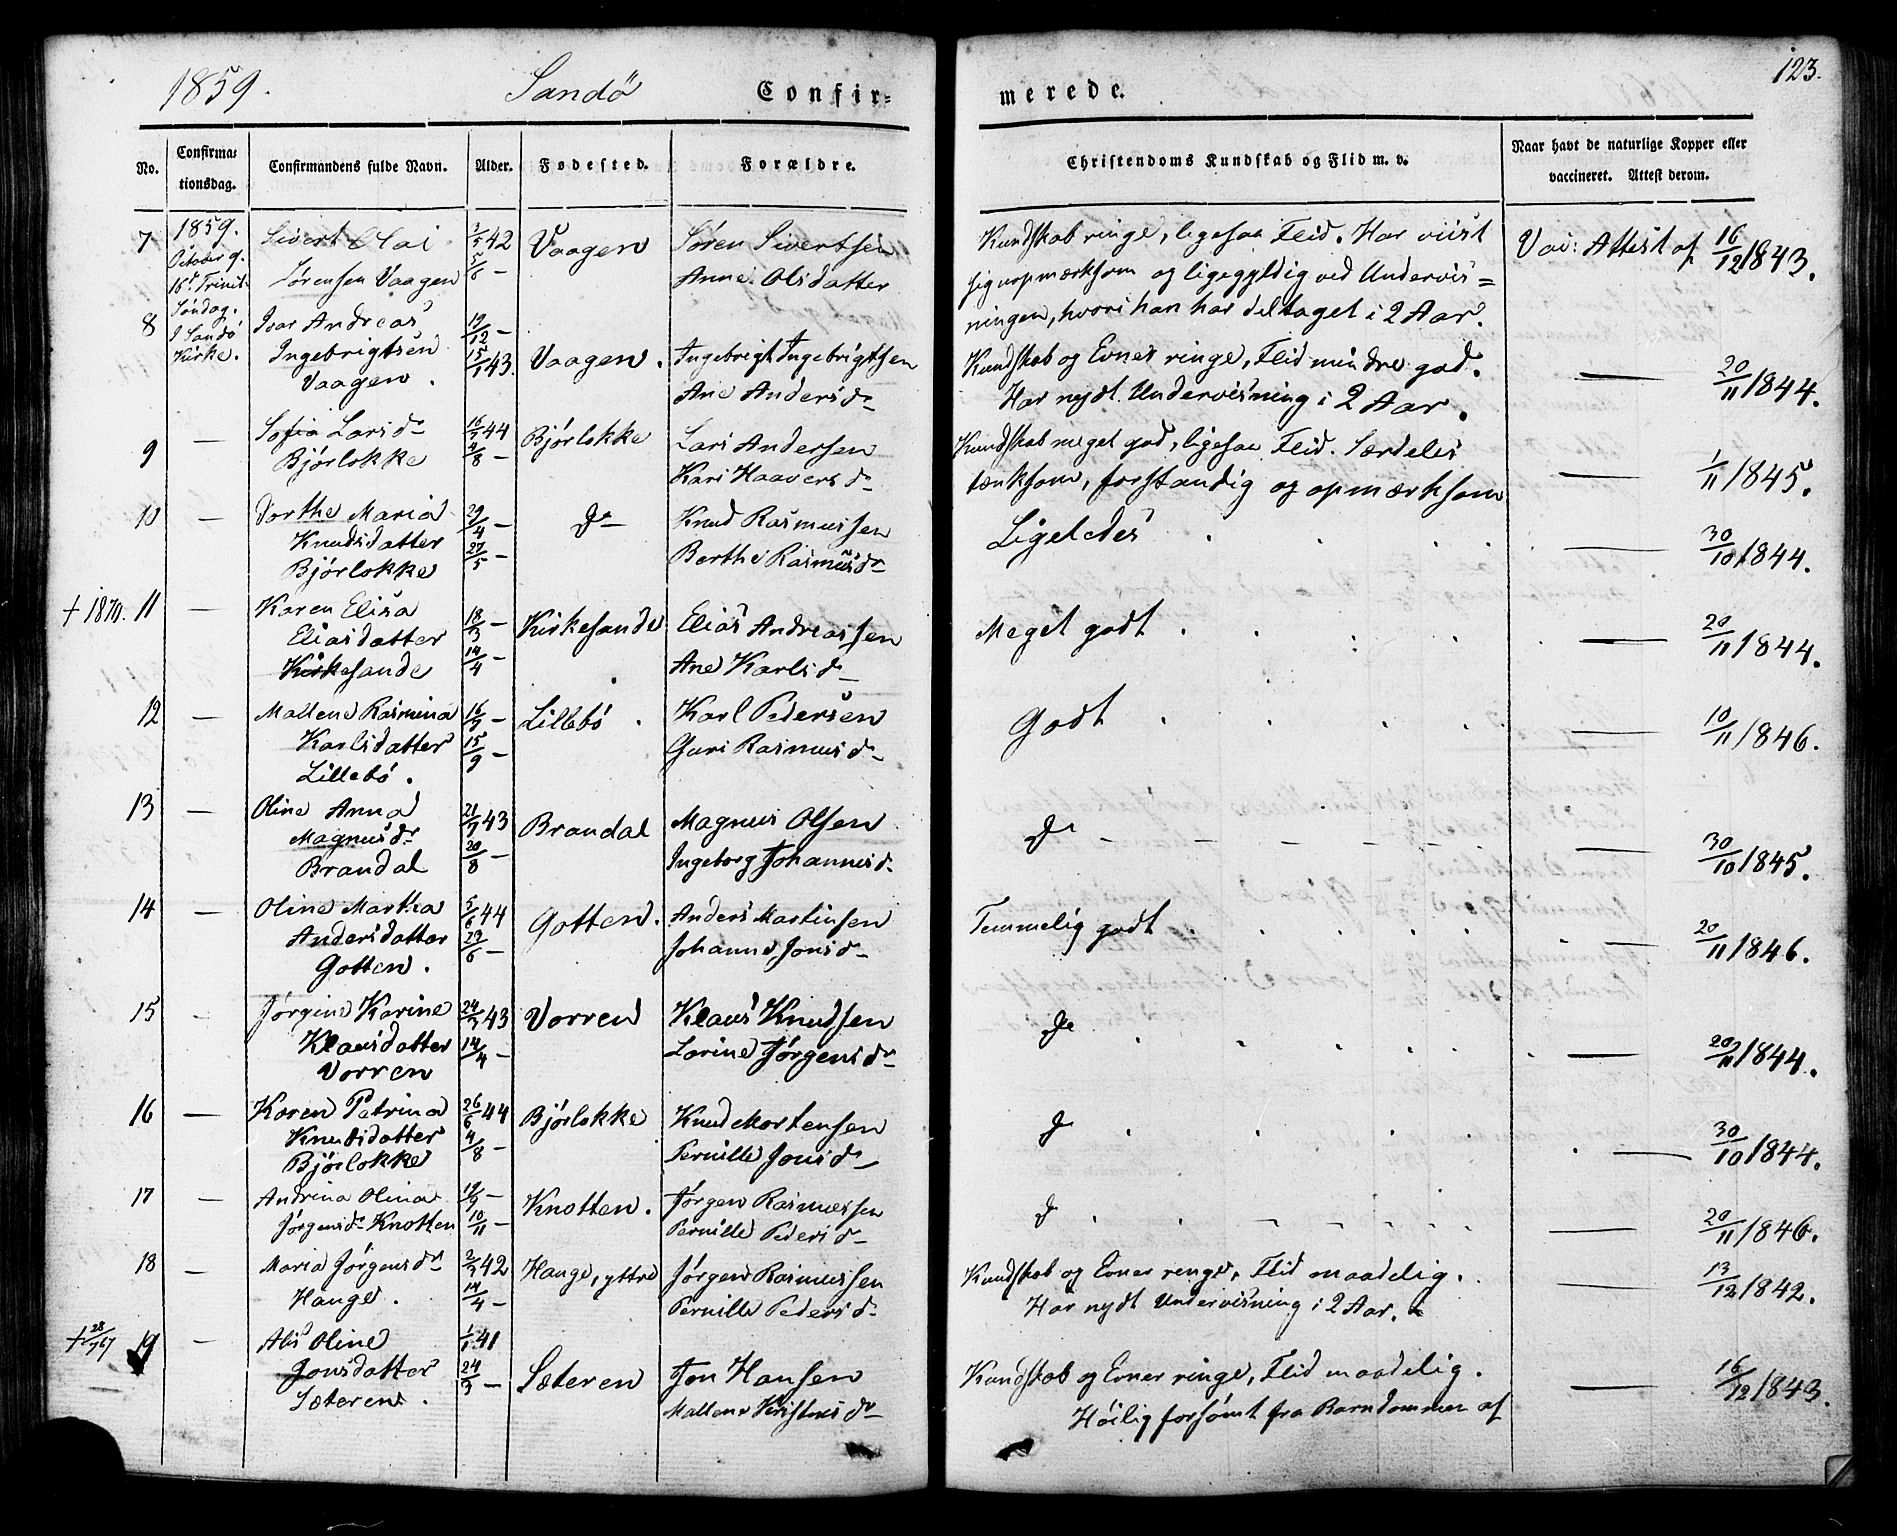 1859. Sandö Confir= merede. 123.
No. Confirma= tionsdag. Confirmandens fulde Navn. Alder. Fødested. Forældre. Christendoms Kundskab og Flid m. v. Naar havt de naturlige Kopper eller vaccineret. Attest derom.
7 1859. October 9. 16d Trinit. Söndag. I Sandö Kirke.
Sivert Olai
Sörensen Vaagen
42
5/6 —
Vaagen
Sören Sivertsen
Anne Olsdatter
Kundskab ringe, ligesaa Flid. Har viist
sig uopmærksom og ligegyldig ved Undervis=
ningen, hvori han har deltaget i 2 Aar.
Vac: Attest af 16/12 1843.
8
Isar Andreas
Ingebrigtsen
Vaagen.
19/12 —
15/1 43.
Vaagen.
Ingebrigt Ingebrigtsen
Ane Andersdr
Kundskab og Evner ringe, Flid mindre god.
Har nydt Undervisning i 2 Aar.
— 20/11 1844.
9 —
Sofia Larsdr
Bjórlokke
44
4/8 —
Bjórlokke
Lars Andersen
Kari Haaversdr
Kundskab meget god, ligesaa Flid. Særdeles
tænksom, forstandig og opmærksom
— 1/11 1845.
10 —
Dorthe Maria
Knudsdatter
Bjórlokke
29/4 —
27/5 —
Do
Knud Rasmussen
Berthe Rasmusdr
Ligeledes
— 30/10 1844.
† 1870. 11 —
Karen Elisa
Eliasdatter
Kirkesande
18/3 —
14/4 —
Kirkesande
Elias Andreassen
Ane Karlsdr
Meget godt
— 20/11 1844.
12 —
Mallene Rasmina
Karlsdatter
Lillebó.
16/7 —
15/9 —
Lillebó.
Karl Pedersen
Guri Rasmusdr
Godt
— 10/11 1846.
13 —
Oline Anna
Magnusdr
Brandal
21/7 43
20/8 —
Brandal
Magnus Olsen
Ingeborg Johannesdr
Do
— 30/10 1845.
14 —
Oline Martha
Andersdatter
Gotten.
5/6 44
23/6 —
Gotten.
Anders Martinsen
Johanne Jonsdr
Temmelig godt
— 20/11 1846.
15 —
Jörgine Karine
Klausdatter
Vorren
24/3 43
14/4 —
Vorren
Klaus Knudsen
Lorine Jörgensdr
Do
— 20/11 1844.
16 —
Karen Petrina
Knudsdatter
Bjórlokke
26/6 44
4/8 —
Bjórlokke
Knud Mortensen
Pernille Jonsdr
Do
— 30/10 1844.
17 —
Andrina Olina
Jörgensdr Knotten
19/9 —
10/11 —
Knotten.
Jörgen Rasmussen
Pernille Pedersdr
Do
— 20/11 1846.
18 —
Maria Jörgensdr
Hauge.
2/3 42
14/4 —
Hauge, yttre
Jörgen Rasmussen
Pernille Pedersdr
Kundskab og Evner ringe, Flid maadelig.
Har nydt Undervisning i 2 Aar.
— 13/12 1842.
19 —
Oline
Jonsdatter
Sæteren.
1/1 41
24/3 —
Sæteren
Jon Hansen
Mallene
Kundskab og Evner ringe, Flid maadelig.
Hóilig forsömt fra Barndommen af
— 16/12 1843.